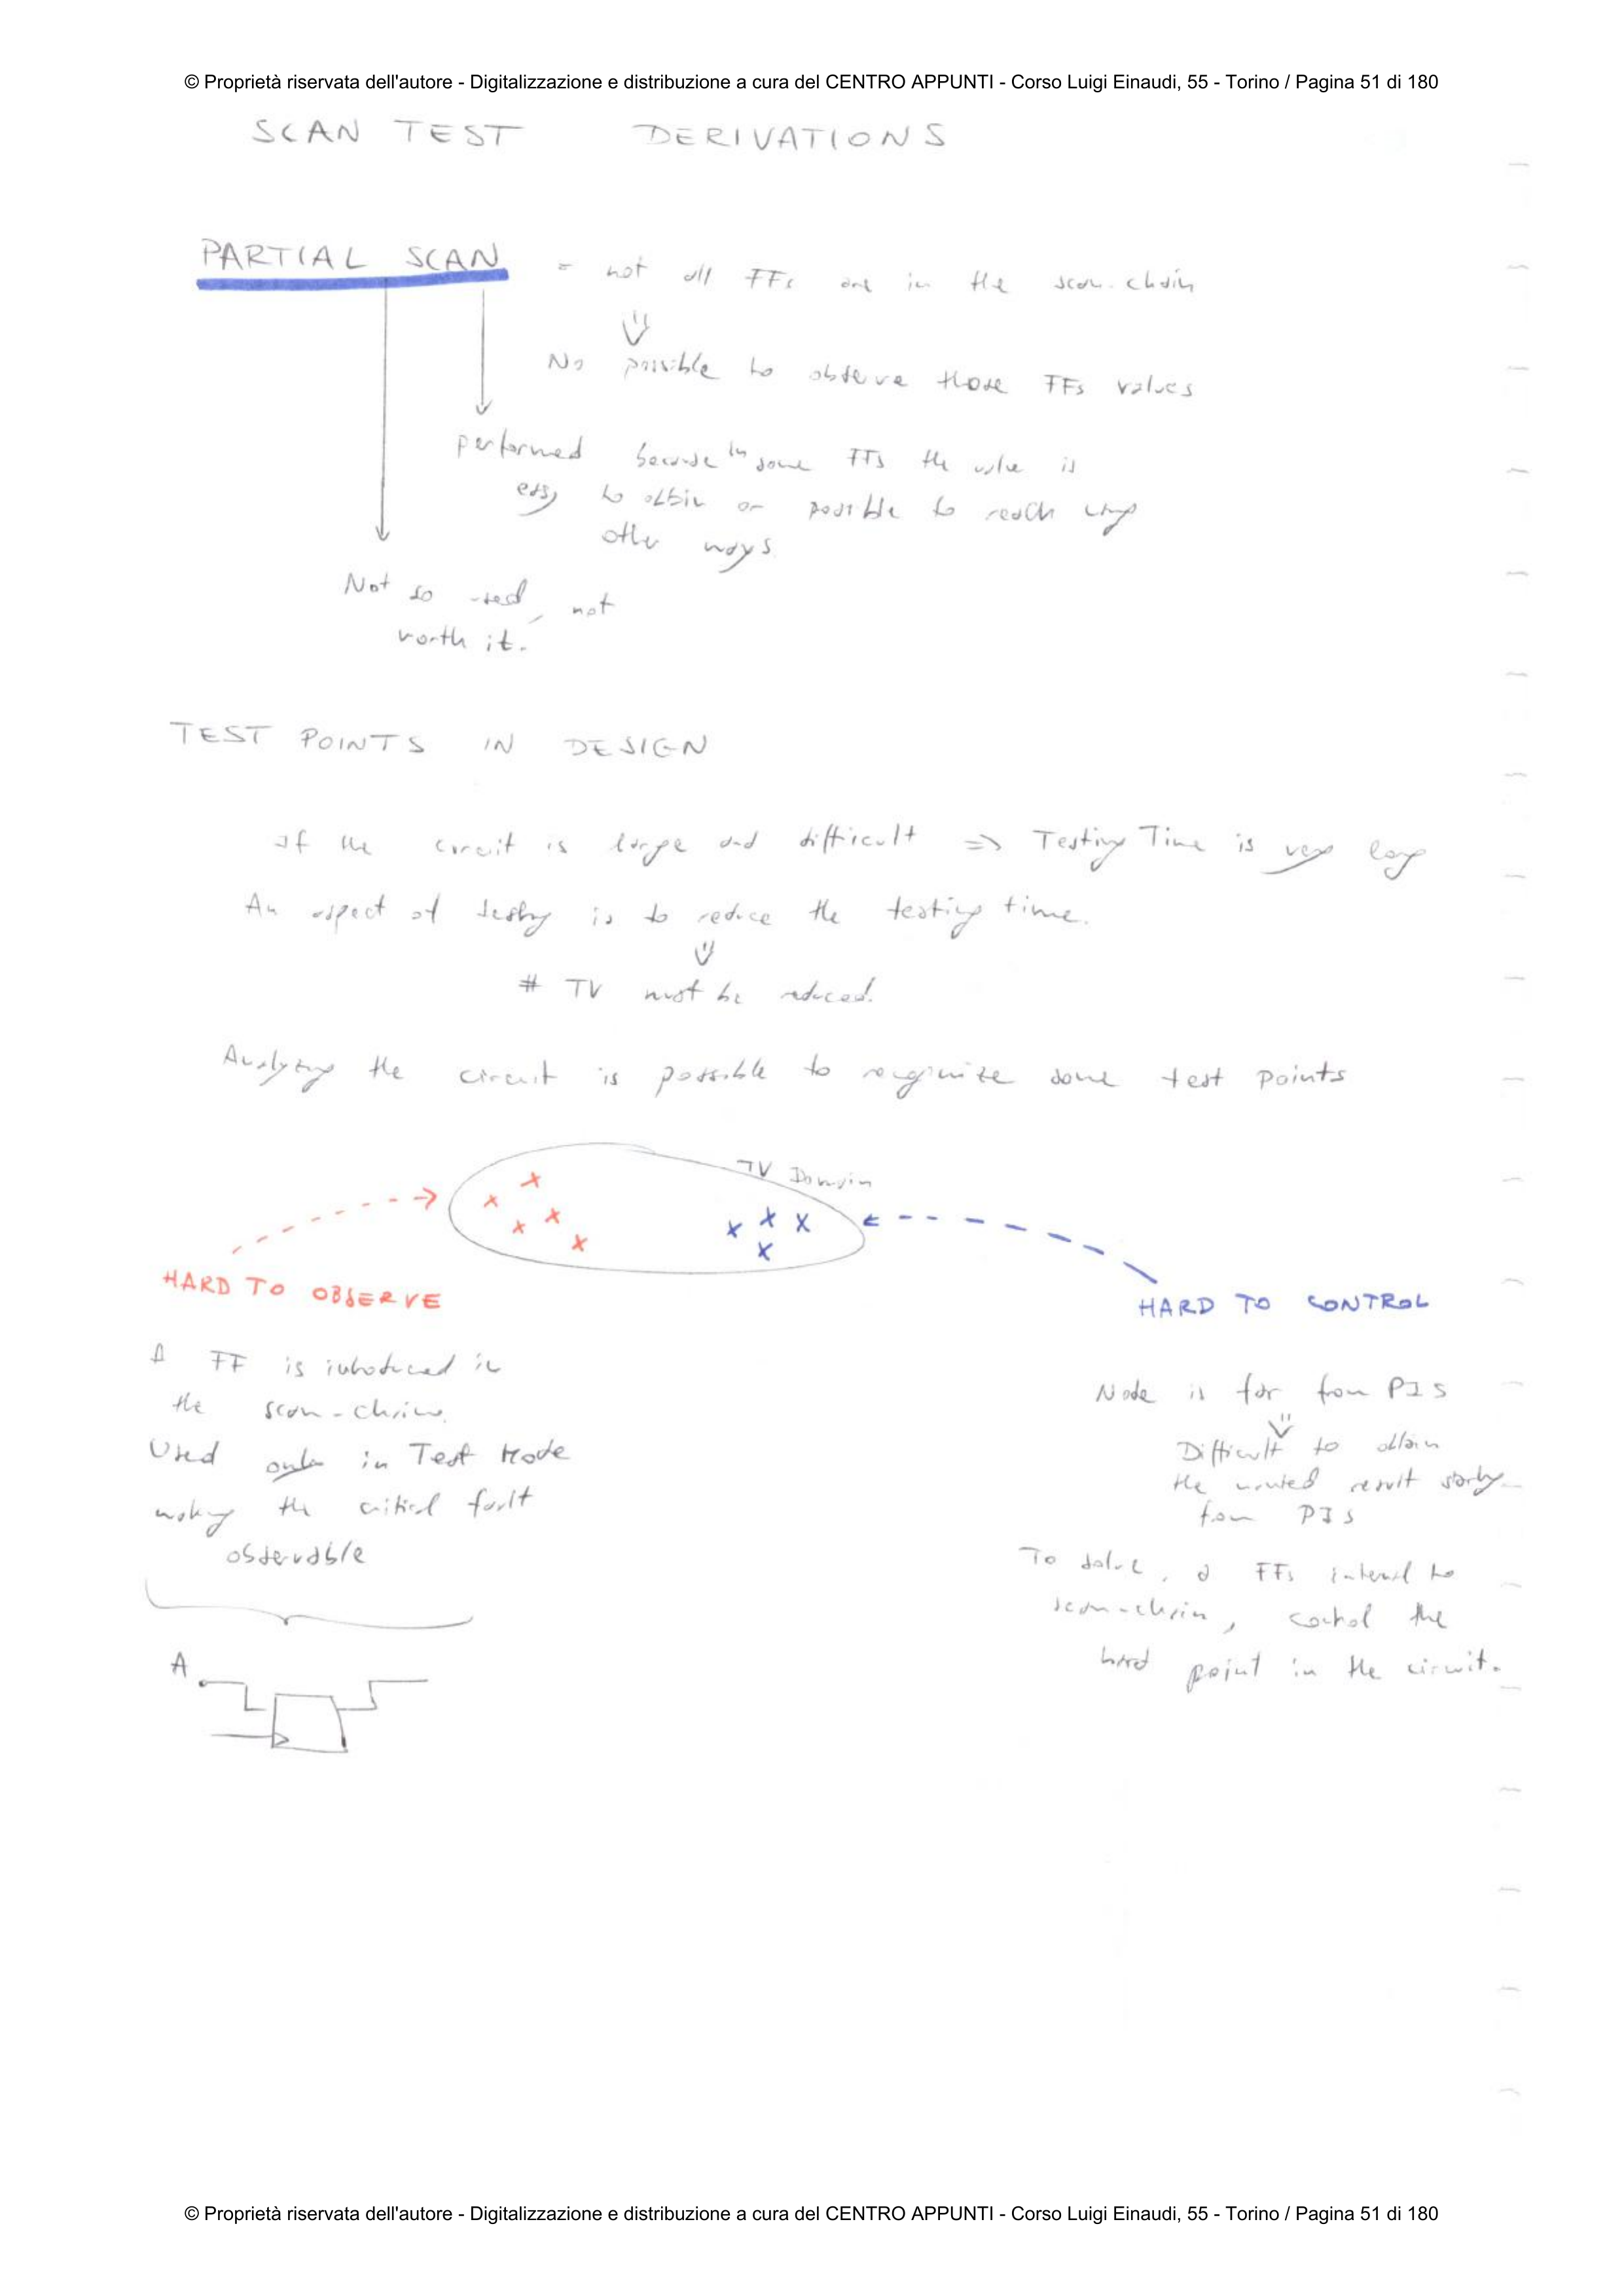 © Proprietà riservata dell'autore - Digitalizzazione e distribuzione a cura del CENTRO APPUNTI - Corso Luigi Einaudi, 55 - Torino / Pagina 51 di 180
SCAN TEST DERIVATIONS
PARTIAL SCAN = not all FFs are in the scan-chain
⇓
No possible to observe those FFs values
performed because in some FFs the value is
easy to obtain or possible to reach using
other ways
Not so used, not
worth it.
TEST POINTS IN DESIGN
If the circuit is large and difficult => Testing Time is very long
An aspect of testing is to reduce the testing time.
⇓
# TV must be reduced.
Analyzing the circuit is possible to recognize some test points
TV Domain
HARD TO OBSERVE
HARD TO CONTROL
A FF is introduced in
the scan-chain.
Used only in Test Mode
making the critical fault
observable
A
Node is far from PIs
⇓
Difficult to obtain
the wanted result starting
from PIs
To solve, a FFs internal to
scan-chain, control the
hard point in the circuit.
© Proprietà riservata dell'autore - Digitalizzazione e distribuzione a cura del CENTRO APPUNTI - Corso Luigi Einaudi, 55 - Torino / Pagina 51 di 180